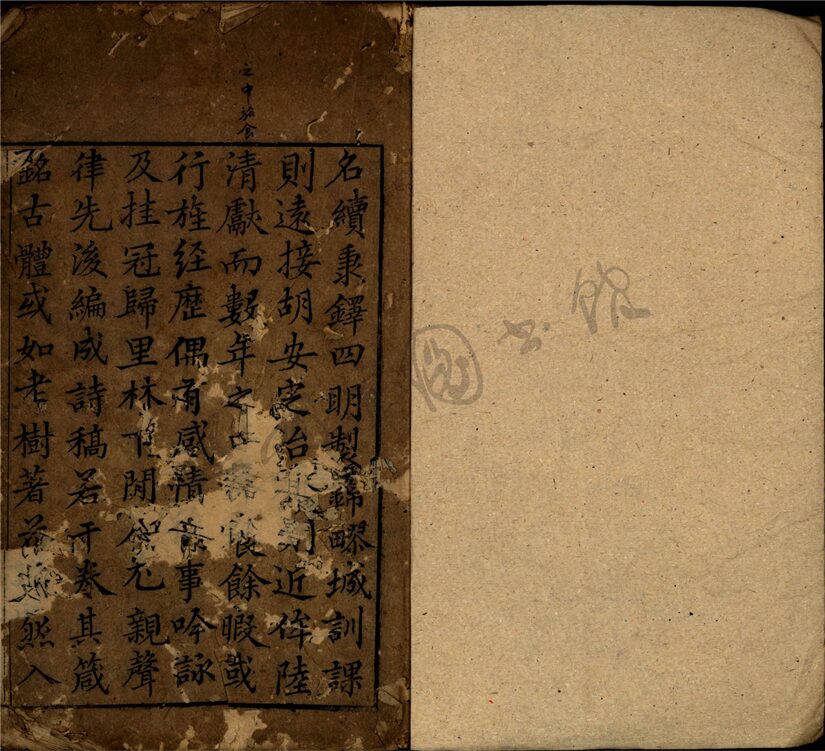 名續秉鐸四明製錦疁城訓課
則遠接胡安定治則近侔陸
清獻而數年之餘暇或
行旌经歷偶有感情事吟詠
及挂冠歸里林下閒尤親聲
律先後編成詩稿若干卷其箴
銘古體或如老樹著然入
之中
书馆